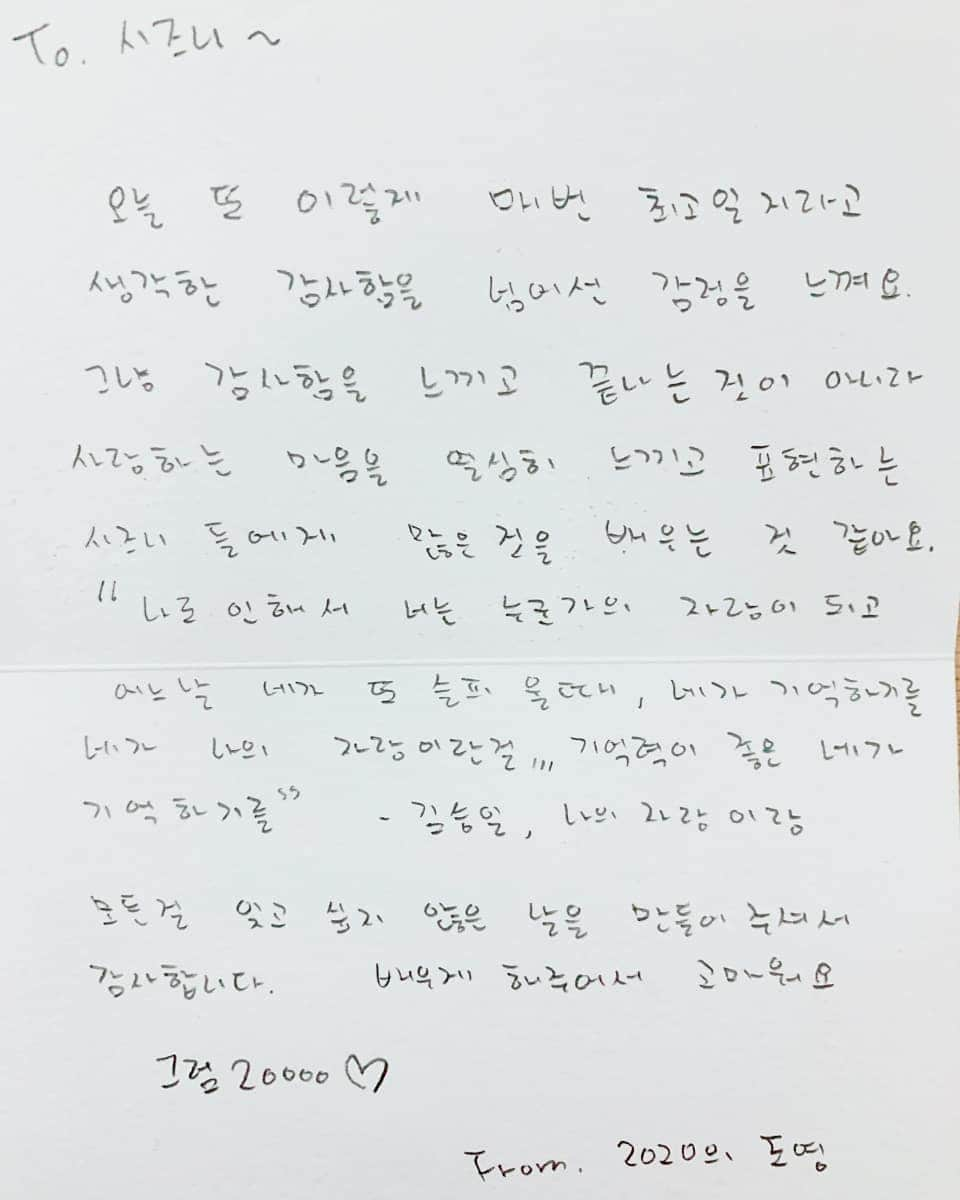 To. 시즈니~
오늘 또 이렇게 매번 최고일지라고
생각한 감사함을 넘어선 감정을 느껴요.
그냥 감사함을 느끼고 끝나는 것이 아니라
사랑하는 마음을 열심히 느끼고 표현하는
시즈니 들에게 많은 것을 배우는 것 같아요.
"나로 인해서 너는 누군가의 자랑이 되고
어느날 네가 또 슬피 울때, 네가 기억하기를
네가 나의 자랑이란걸,,, 기억력이 좋은 네가
기억하기를" - 김승일, 나의 자랑 이랑
모든걸 잊고 쉽지 않은 날을 만들어 주셔서
감사합니다. 배우게 해주어서 고마워요
그럼 20000♡
From. 2020의 도영